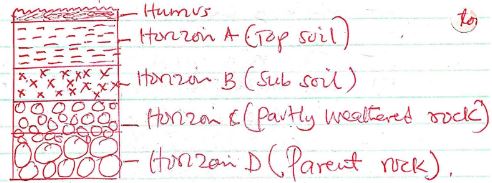 Humus
Horizon A (Top soil)
Horizon B (Sub soil)
Horizon C (Partly weathered rock)
Horizon D (Parent rock).